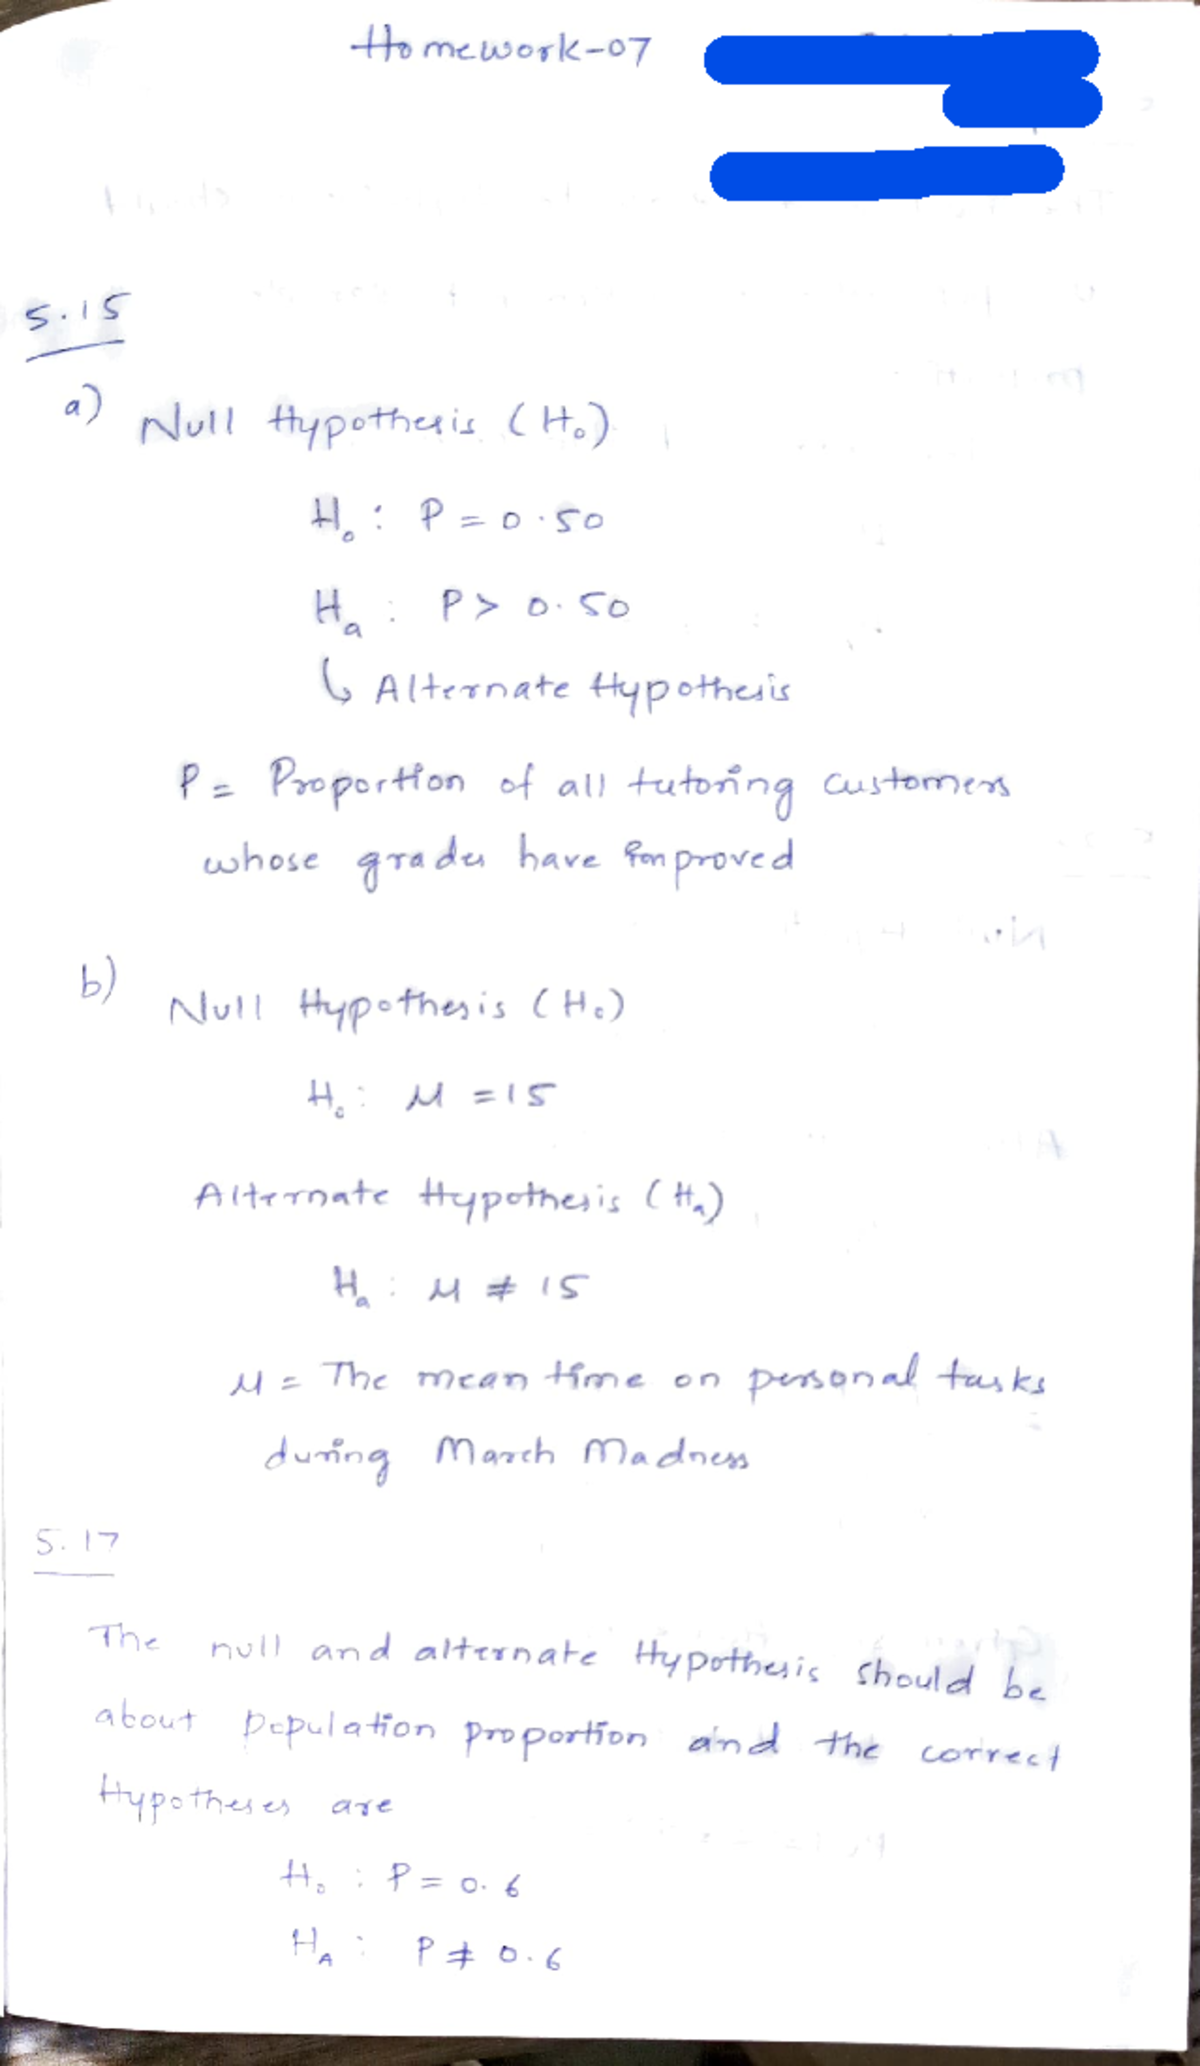 Homework-07
5.15
a) Null Hypothesis (H₀)
H₀: P = 0.50
Hₐ: P > 0.50
↳ Alternate Hypothesis
P = Proportion of all tutoring customers
whose grades have improved
b) Null Hypothesis (H₀)
H₀: μ = 15
Alternate Hypothesis (Hₐ)
Hₐ: μ ≠ 15
μ = The mean time on personal tasks
during March Madness
5.17
The null and alternate Hypothesis should be
about population proportion and the correct
Hypotheses are
H₀: P = 0.6
H_A: P ≠ 0.6